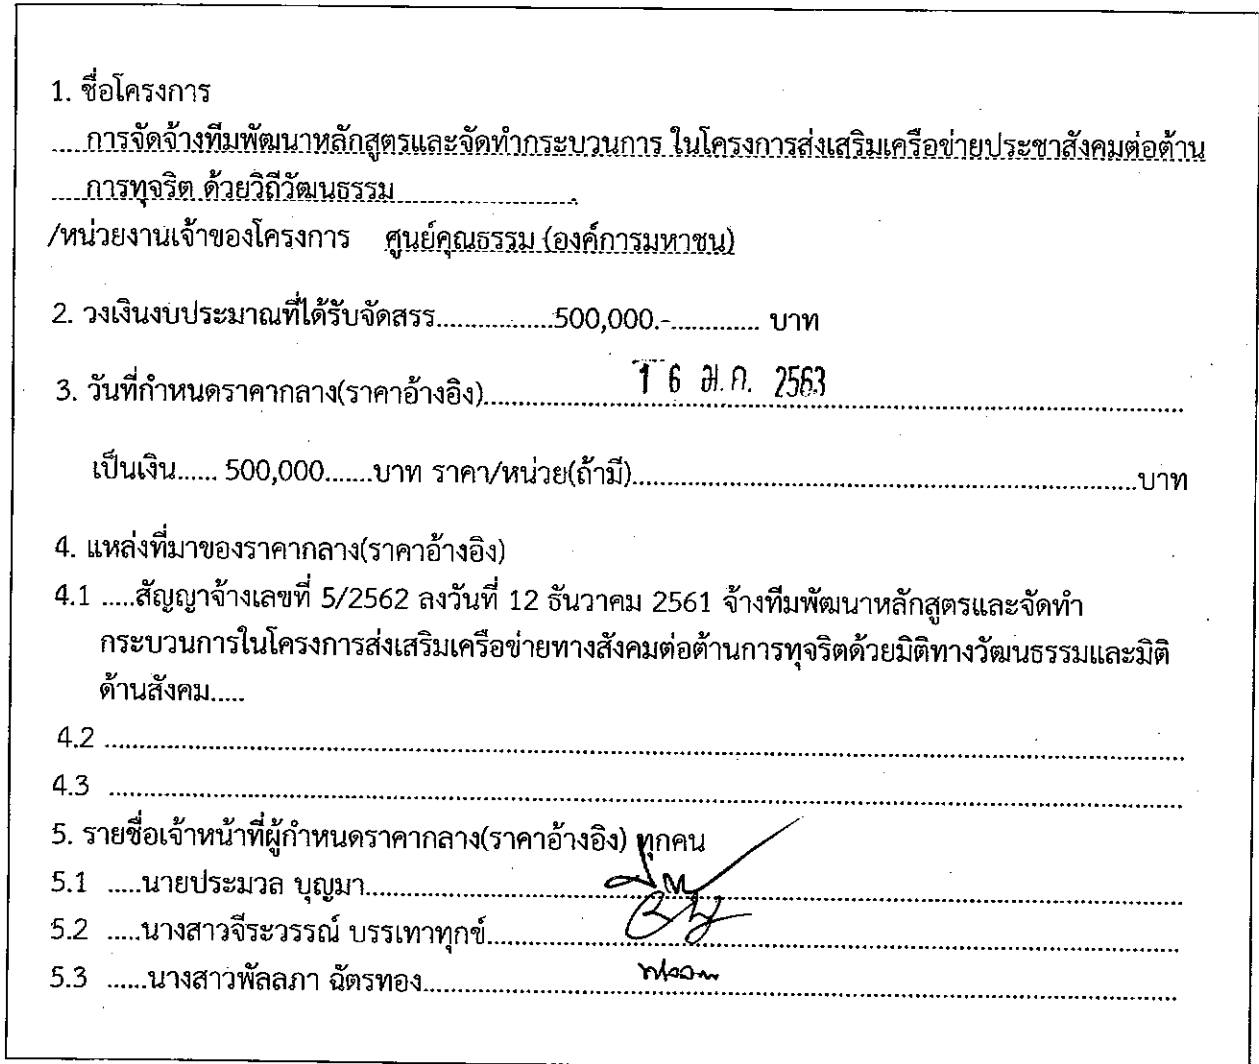 1. ชื่อโครงการ
.....การจัดจ้างทีมพัฒนาหลักสูตรและจัดทำกระบวนการ ในโครงการส่งเสริมเครือข่ายประชาสังคมต่อต้าน
.....การทุจริต ด้วยวิถีวัฒนธรรม.............................
/หน่วยงานเจ้าของโครงการ ศูนย์คุณธรรม (องค์การมหาชน)
2. วงเงินงบประมาณที่ได้รับจัดสรร.................500,000.-............. บาท
3. วันที่กำหนดราคากลาง(ราคาอ้างอิง)....................16 ม.ค. 2563....................
เป็นเงิน...... 500,000.......บาท ราคา/หน่วย(ถ้ามี)....................บาท
4. แหล่งที่มาของราคากลาง(ราคาอ้างอิง)
4.1 .....สัญญาจ้างเลขที่ 5/2562 ลงวันที่ 12 ธันวาคม 2561 จ้างทีมพัฒนาหลักสูตรและจัดทำ
กระบวนการในโครงการส่งเสริมเครือข่ายทางสังคมต่อต้านการทุจริตด้วยมิติทางวัฒนธรรมและมิติ
ด้านสังคม.....
4.2 ....................
4.3 ....................
5. รายชื่อเจ้าหน้าที่ผู้กำหนดราคากลาง(ราคาอ้างอิง) ทุกคน
5.1 .....นายประมวล บุญมา....................
5.2 .....นางสาวจีระวรรณ์ บรรเทาทุกข์....................
5.3 ......นางสาวพัลลภา ฉัตรทอง....................